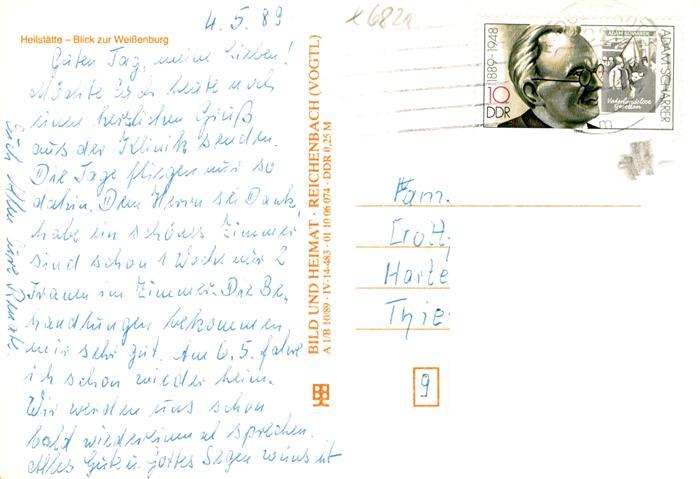 4.5.89
x682a
Heilstätte – Blick zur Weißenburg
Guten Tag, meine Lieben!
Möchte Euch heute noch
einen herzlichen Gruß
aus der Klinik senden.
Die Tage fliegen nur so
dahin. Dem Herrn sei Dank,
habe ein schönes Zimmer
sind schon 1 Woche nur 2
Frauen im Zimmer. Die Be-
handlungen bekommen
mir sehr gut. Am 6.5. fahre
ich schon wieder heim.
Wir werden uns schon
bald wiedereinmal sprechen.
Alles Gute u. Gottes Segen wünscht
Euch Allen Eure Renate.
BILD UND HEIMAT · REICHENBACH (VOGTL)
A 1/B 10/89 · IV-14-483 · 01 10 06 074 · DDR 0,25 M
1889-1948
10
DDR
ADAM SCHARRER
Vaterlandslose
Gesellen
ADAM SCHARRER
Fam.
Harte
Thie
9